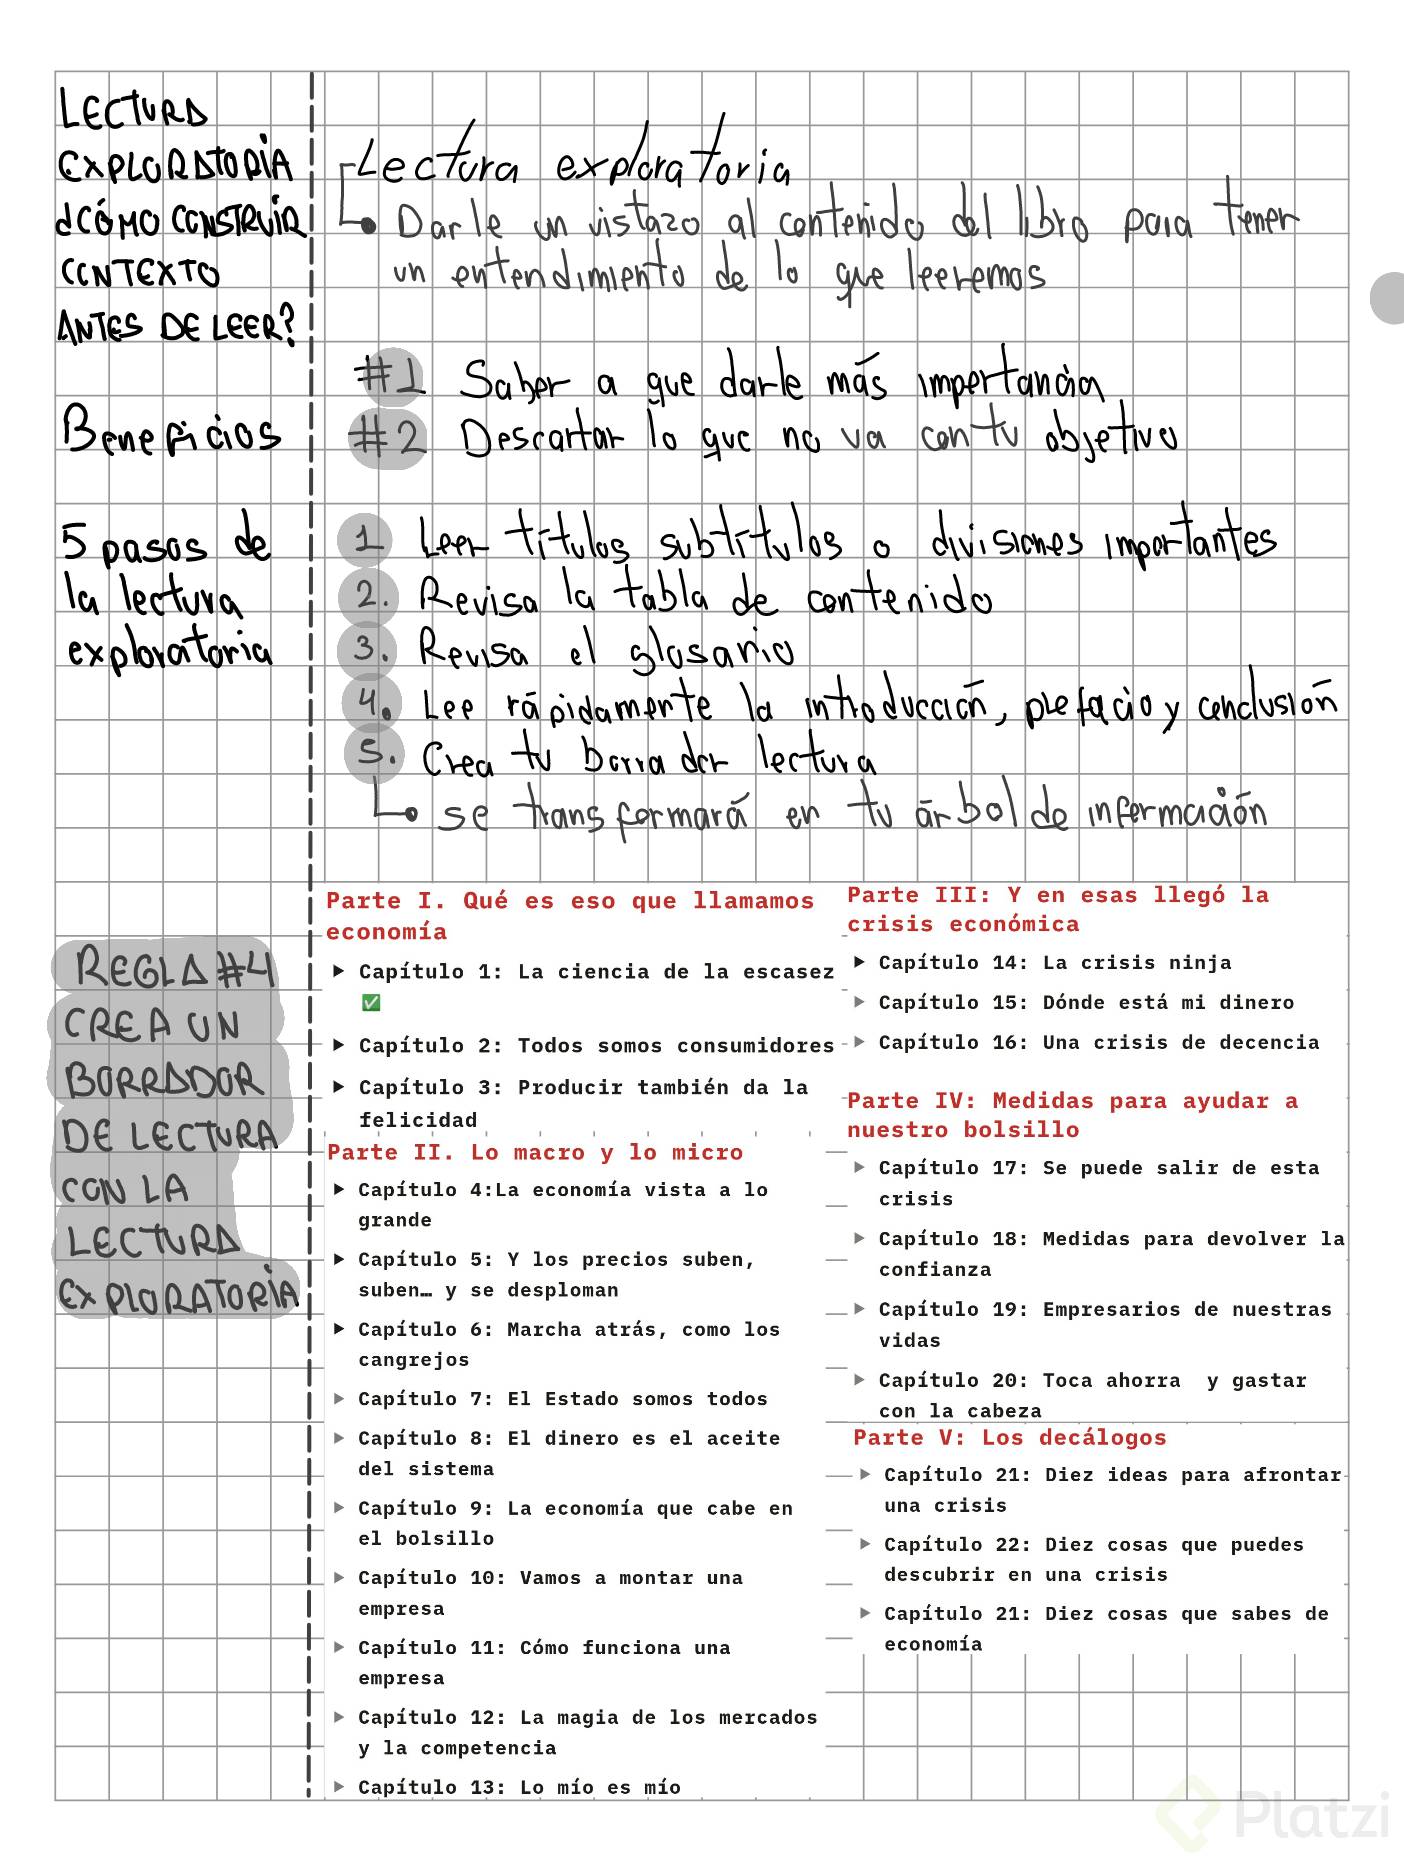 LECTURA
EXPLORATORIA
¿CÓMO CONSTRUIR
CONTEXTO
ANTES DE LEER?
Lectura exploratoria
Darle un vistazo al contenido del libro para tener
un entendimiento de lo que leeremos
Beneficios
#1 Saber a que darle más importancia
#2 Descartar lo que no va con tu objetivo
5 pasos de
la lectura
exploratoria
1 Leer títulos subtítulos o divisiones importantes
2. Revisa la tabla de contenido
3. Revisa el glosario
4. Lee rápidamente la introducción, prefacio y conclusión
5. Crea tu borrador lectura
se transformará en tu árbol de información
REGLA #4
CREA UN
BORRADOR
DE LECTURA
CON LA
LECTURA
EXPLORATORIA
Parte I. Qué es eso que llamamos
economía
Capítulo 1: La ciencia de la escasez
✅
Capítulo 2: Todos somos consumidores
Capítulo 3: Producir también da la
felicidad
Parte II. Lo macro y lo micro
Capítulo 4:La economía vista a lo
grande
Capítulo 5: Y los precios suben,
suben… y se desploman
Capítulo 6: Marcha atrás, como los
cangrejos
Capítulo 7: El Estado somos todos
Capítulo 8: El dinero es el aceite
del sistema
Capítulo 9: La economía que cabe en
el bolsillo
Capítulo 10: Vamos a montar una
empresa
Capítulo 11: Cómo funciona una
empresa
Capítulo 12: La magia de los mercados
y la competencia
Capítulo 13: Lo mío es mío
Parte III: Y en esas llegó la
crisis económica
Capítulo 14: La crisis ninja
Capítulo 15: Dónde está mi dinero
Capítulo 16: Una crisis de decencia
Parte IV: Medidas para ayudar a
nuestro bolsillo
Capítulo 17: Se puede salir de esta
crisis
Capítulo 18: Medidas para devolver la
confianza
Capítulo 19: Empresarios de nuestras
vidas
Capítulo 20: Toca ahorra  y gastar
con la cabeza
Parte V: Los decálogos
Capítulo 21: Diez ideas para afrontar
una crisis
Capítulo 22: Diez cosas que puedes
descubrir en una crisis
Capítulo 21: Diez cosas que sabes de
economía
Platzi